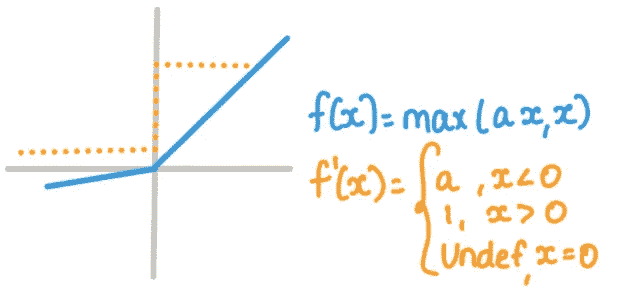 f(x)=max(ax,x)
f'(x)={a ,x<0
1, x>0
Undef,x=0